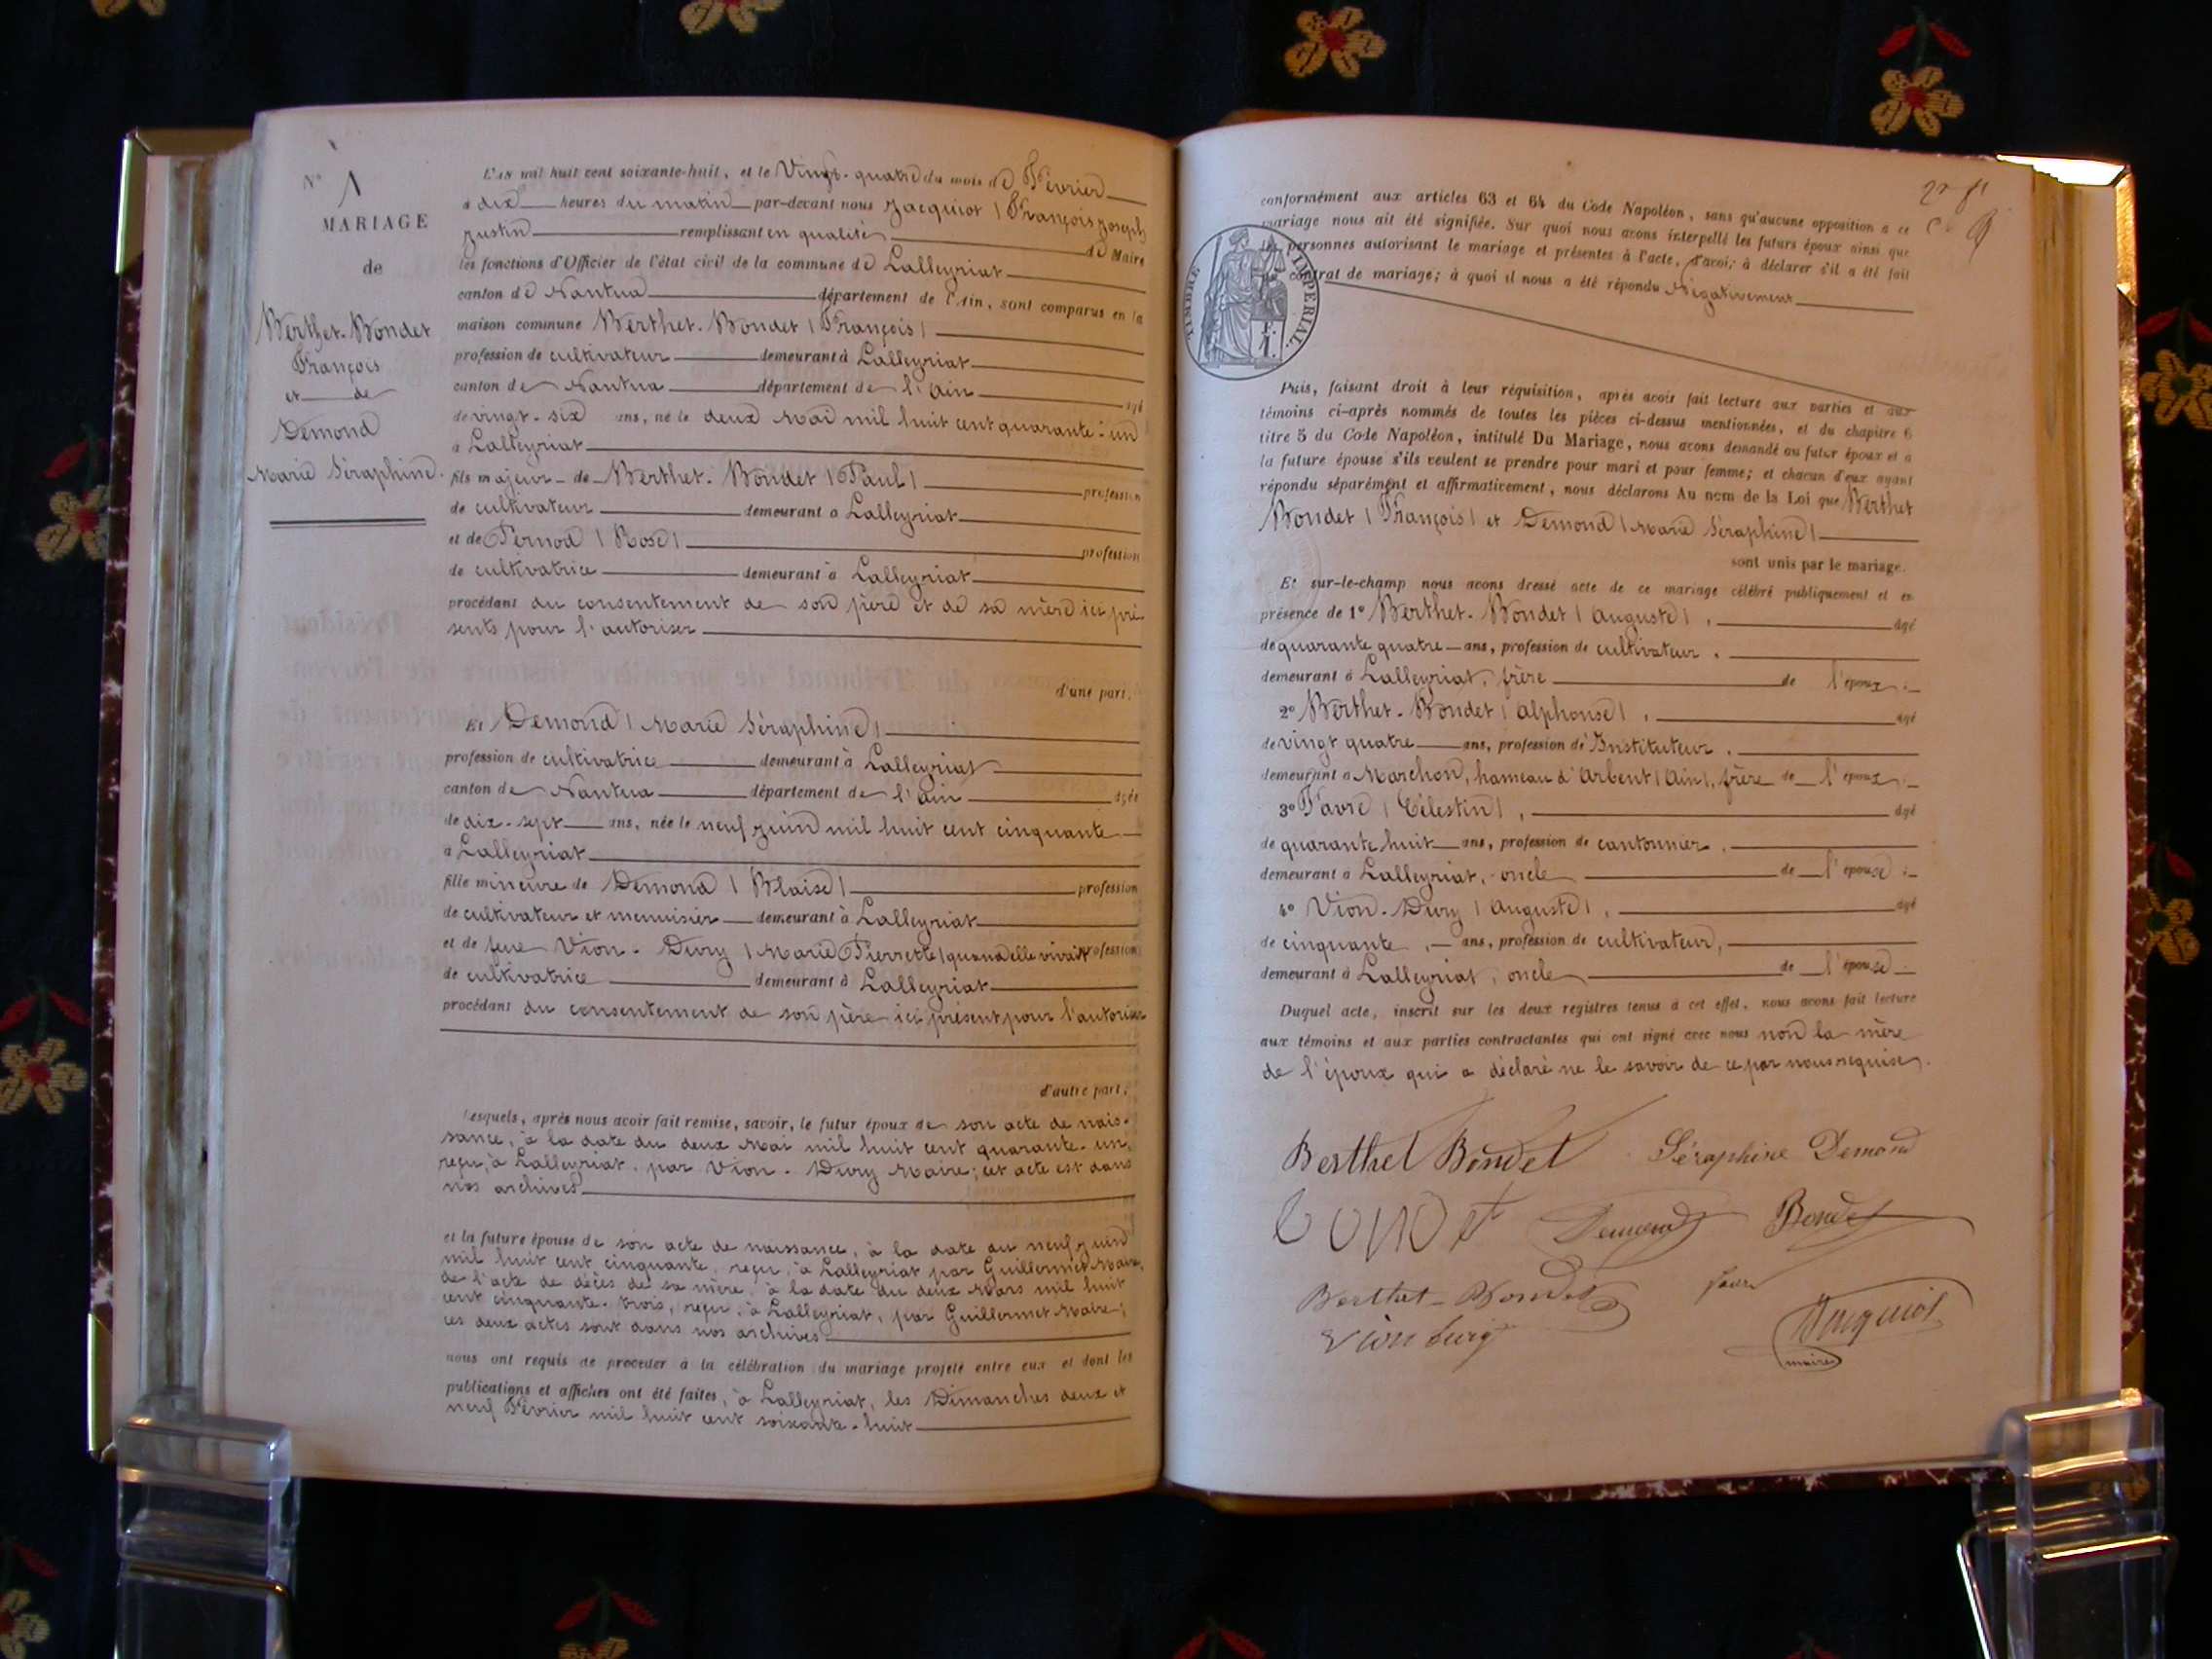 N° 1
MARIAGE
de
Berthet-Bondet
François
et de
Démond
Marie Séraphine.
L'an mil huit cent soixante-huit, et le Vingt-quatre du mois de Février
à dix heures du matin par-devant nous Jacquiot (François Joseph
Justin remplissant en qualité de Maire
les fonctions d'Officier de l'état civil de la commune de Lalleyriat
canton de Nantua département de l'Ain, sont comparus en la
maison commune Berthet-Bondet (François)
profession de cultivateur demeurant à Lalleyriat
canton de Nantua département de l'Ain âgé
de vingt-six ans, né le deux Mai mil huit cent quarante-un
à Lalleyriat
fils majeur de Berthet-Bondet (Paul) profession
de cultivateur demeurant à Lalleyriat
et de Pernod (Rose) profession
de cultivatrice demeurant à Lalleyriat
procédant du consentement de son père et de sa mère ici pré-
sents pour l'autoriser
d'une part.
Et Démond (Marie Séraphine)
profession de cultivatrice demeurant à Lalleyriat
canton de Nantua département de l'Ain âgée
de dix-sept ans, née le neuf Juin mil huit cent cinquante
à Lalleyriat
fille mineure de Démond (Blaise) profession
de cultivateur et menuisier demeurant à Lalleyriat
et de feue Vion-Dury (Marie Pierrette) quand elle vivait profession
de cultivatrice demeurant à Lalleyriat
procédant du consentement de son père ici présent pour l'autoriser
d'autre part.
Lesquels, après nous avoir fait remise, savoir, le futur époux de son acte de nais-
sance, à la date du deux Mai mil huit cent quarante-un,
reçu, à Lalleyriat, par Vion-Dury Maire; cet acte est dans
nos archives
et la future épouse de son acte de naissance, à la date du neuf Juin
mil huit cent cinquante, reçu, à Lalleyriat par Guillermet Maire,
de l'acte de décès de sa mère, à la date du deux Mars mil huit
cent cinquante-trois, reçu, à Lalleyriat, par Guillermet Maire;
ces deux actes sont dans nos archives
nous ont requis de procéder à la célébration du mariage projeté entre eux et dont les
publications et affiches ont été faites, à Lalleyriat, les Dimanches deux et
neuf Février mil huit cent soixante-huit
conformément aux articles 63 et 64 du Code Napoléon, sans qu'aucune opposition à ce
mariage nous ait été signifiée. Sur quoi nous avons interpellé les futurs époux ainsi que
les personnes autorisant le mariage et présentes à l'acte, d'avoi; à déclarer s'il a été fait
contrat de mariage; à quoi il nous a été répondu Négativement
TIMBRE IMPERIAL.
Puis, faisant droit à leur réquisition, après avoir fait lecture aux parties et aux
témoins ci-après nommés de toutes les pièces ci-dessus mentionnées, et du chapitre 6
titre 5 du Code Napoléon, intitulé Du Mariage, nous avons demandé au futur époux et à
la future épouse s'ils veulent se prendre pour mari et pour femme; et chacun d'eux ayant
répondu séparément et affirmativement, nous déclarons Au nom de la Loi que Berthet
Bondet (François) et Démond (Marie Séraphine)
sont unis par le mariage.
Et sur-le-champ nous avons dressé acte de ce mariage célébré publiquement et en
présence de 1° Berthet-Bondet (Auguste), âgé
de quarante quatre ans, profession de cultivateur,
demeurant à Lalleyriat, frère de l'époux;
2° Berthet-Bondet (Alphonse), âgé
de vingt quatre ans, profession de Instituteur,
demeurant à Marchon, hameau d'Arbent (Ain), frère de l'époux;
3° Favre (Célestin), âgé
de quarante huit ans, profession de cantonnier,
demeurant à Lalleyriat, oncle de l'épouse;
4° Vion-Dury (Auguste), âgé
de cinquante, ans, profession de cultivateur,
demeurant à Lalleyriat, oncle de l'épouse
Duquel acte, inscrit sur les deux registres tenus à cet effet, nous avons fait lecture
aux témoins et aux parties contractantes qui ont signé avec nous non la mère
de l'époux qui a déclaré ne le savoir de ce par nous requise.
Berthet Bondet Séraphine Demond
Bondet Demond Bondet
Berthet-Bondet favre
Vion Dury Jacquiot
maire